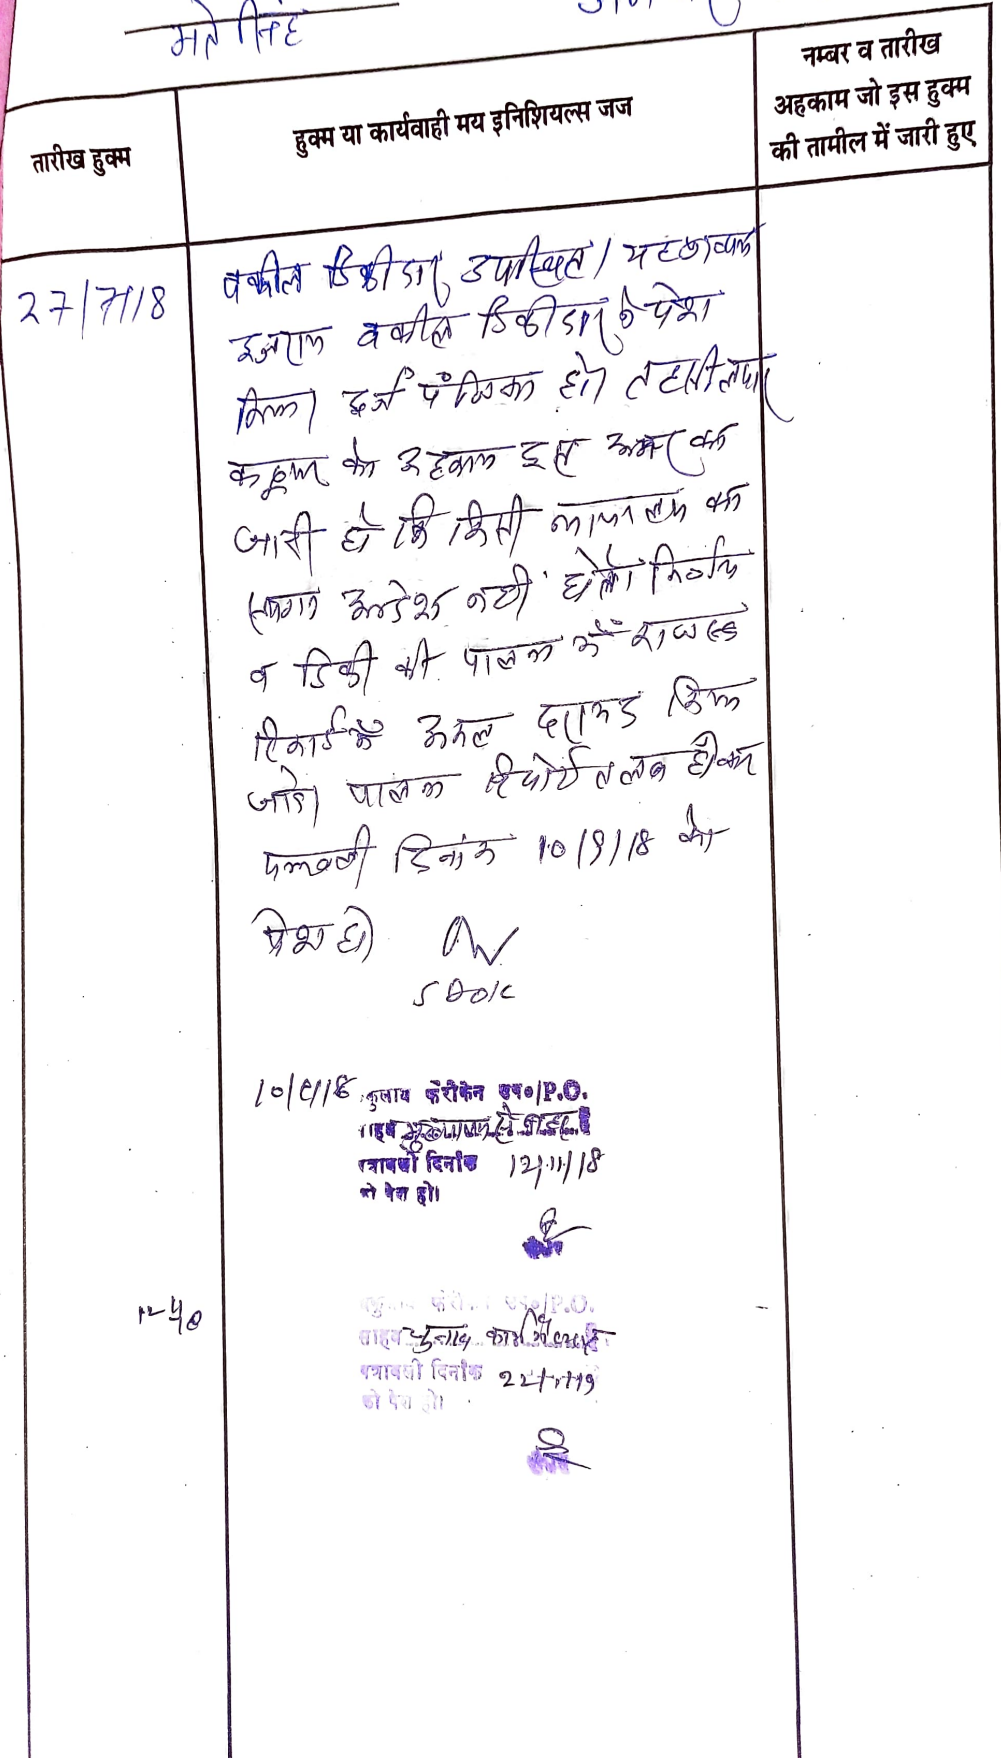 तारीख हुक्म
हुक्म या कार्यवाही मय इनिशियल्स जज
नम्बर व तारीख
अहकाम जो इस हुक्म
की तामील में जारी हुए
27/7/18
वकील डिक्रीदार उपस्थित।
इजराय वकील डिक्रीदार ने पेश
किया। दर्ज पंजिका हो। तहसीलदार
को अहकाम इस अमर का
जारी हो कि किसी न्यायालय का
स्थगन आदेश नहीं हो तो निर्णय
व डिक्री की पालना में राजस्व
रिकार्ड में अमल दरामद किया
जावे। पालना रिपोर्ट तलब होकर
पत्रावली दिनांक 10/9/18 को
पेश हो।
10/9/18
P.O.
पत्रावली दिनांक 12/11/18
को पेश हो।
P.O.
साहब चुनाव कार्य में व्यस्त है
पत्रावली दिनांक 22/1/19
को पेश हो।